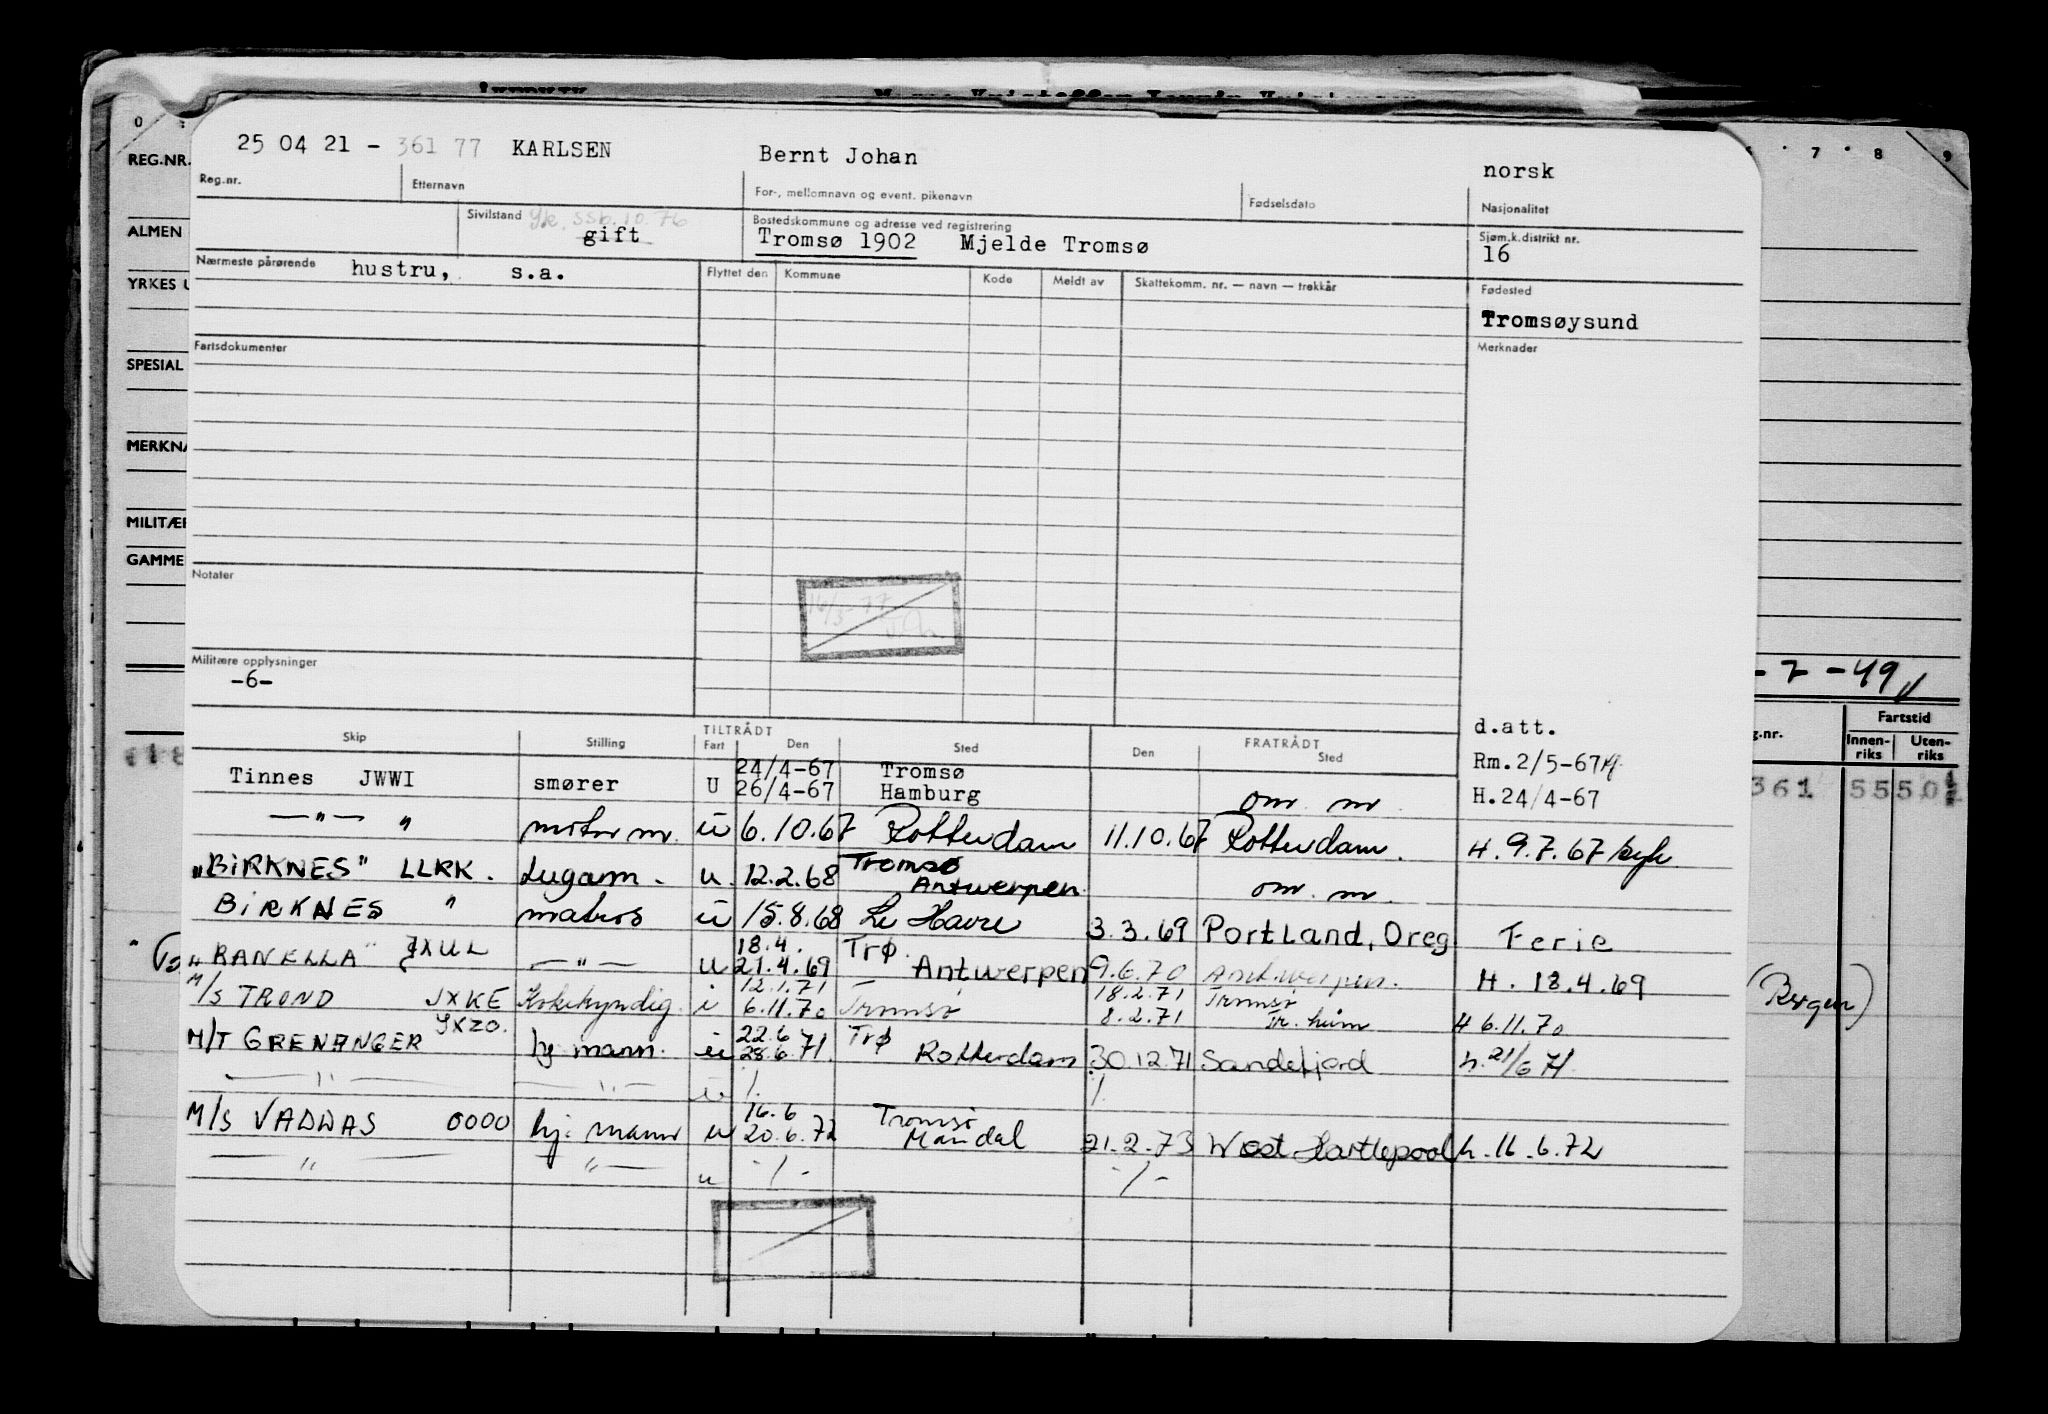 25 04 21 - 361 77 KARLSEN Bernt Johan norsk
Reg.nr. Etternavn For-, mellomnavn og event. pikenavn Fødselsdato Nasjonalitet
Sivilstand ssb. 10. 76 Bostedskommune og adresse ved registrering Sjøm.k.distrikt nr.
gift Tromsø 1902 Mjelde Tromsø 16
Nærmeste pårørende hustru, s.a. Flyttet den Kommune Kode Meldt av Skattekomm. nr. — navn — trekkår Fødested
Tromsøysund
Fartsdokumenter Merknader
Notater
16/3-77
Militære opplysninger
-6-
TILTRÅDT FRATRÅDT d.att.
Skip Stilling Fart Den Sted Den Sted
Tinnes JWWI smører U 24/4-67 26/4-67 Tromsø Hamburg om. m. Rm.2/5-67 H.24/4-67
—"— " motor m. u 6.10.67 Rotterdam 11.10.67 Rotterdam. H. 9.7.67
"BIRKNES" LLRK. Lugarm. u. 12.2.68 Tromsø Antwerpen. om. m.
BIRKNES " matros u 15.8.68 Le Havre 3.3.69 Portland, Oreg Ferie
"RANELLA" JXUL —"— u 18.4. 21.4.69 Trø. Antwerpen 9.6.70 Antwerpen. H. 18.4.69
M/S TROND JXKE Kokekyndig. i 12.1.71 6.11.70 Tromsø 18.2.71 8.2.71 Tromsø Tr.heim H 6.11.70
M/T GRENANGER JXZO. hj mann. u 22.6 28.6.71. Trø Rotterdam 30.12.71 Sandefjord h. 21/6 71
—"— —"— u /. /.
M/S VADDAS 0000 hj. mann u 16.6 20.6.72 Tromsø Mandal 21.2.73 West Hartlepool h. 16.6.72
—"— "— u -/- -/-
REG.NR.
ALMEN
YRKES
SPESIAL
MERKNA
MILITÆR
GAMME
7 8 9
- 7 - 49
g.nr. Fartstid
Innenriks Utenriks
361 55 50
(Bergen)